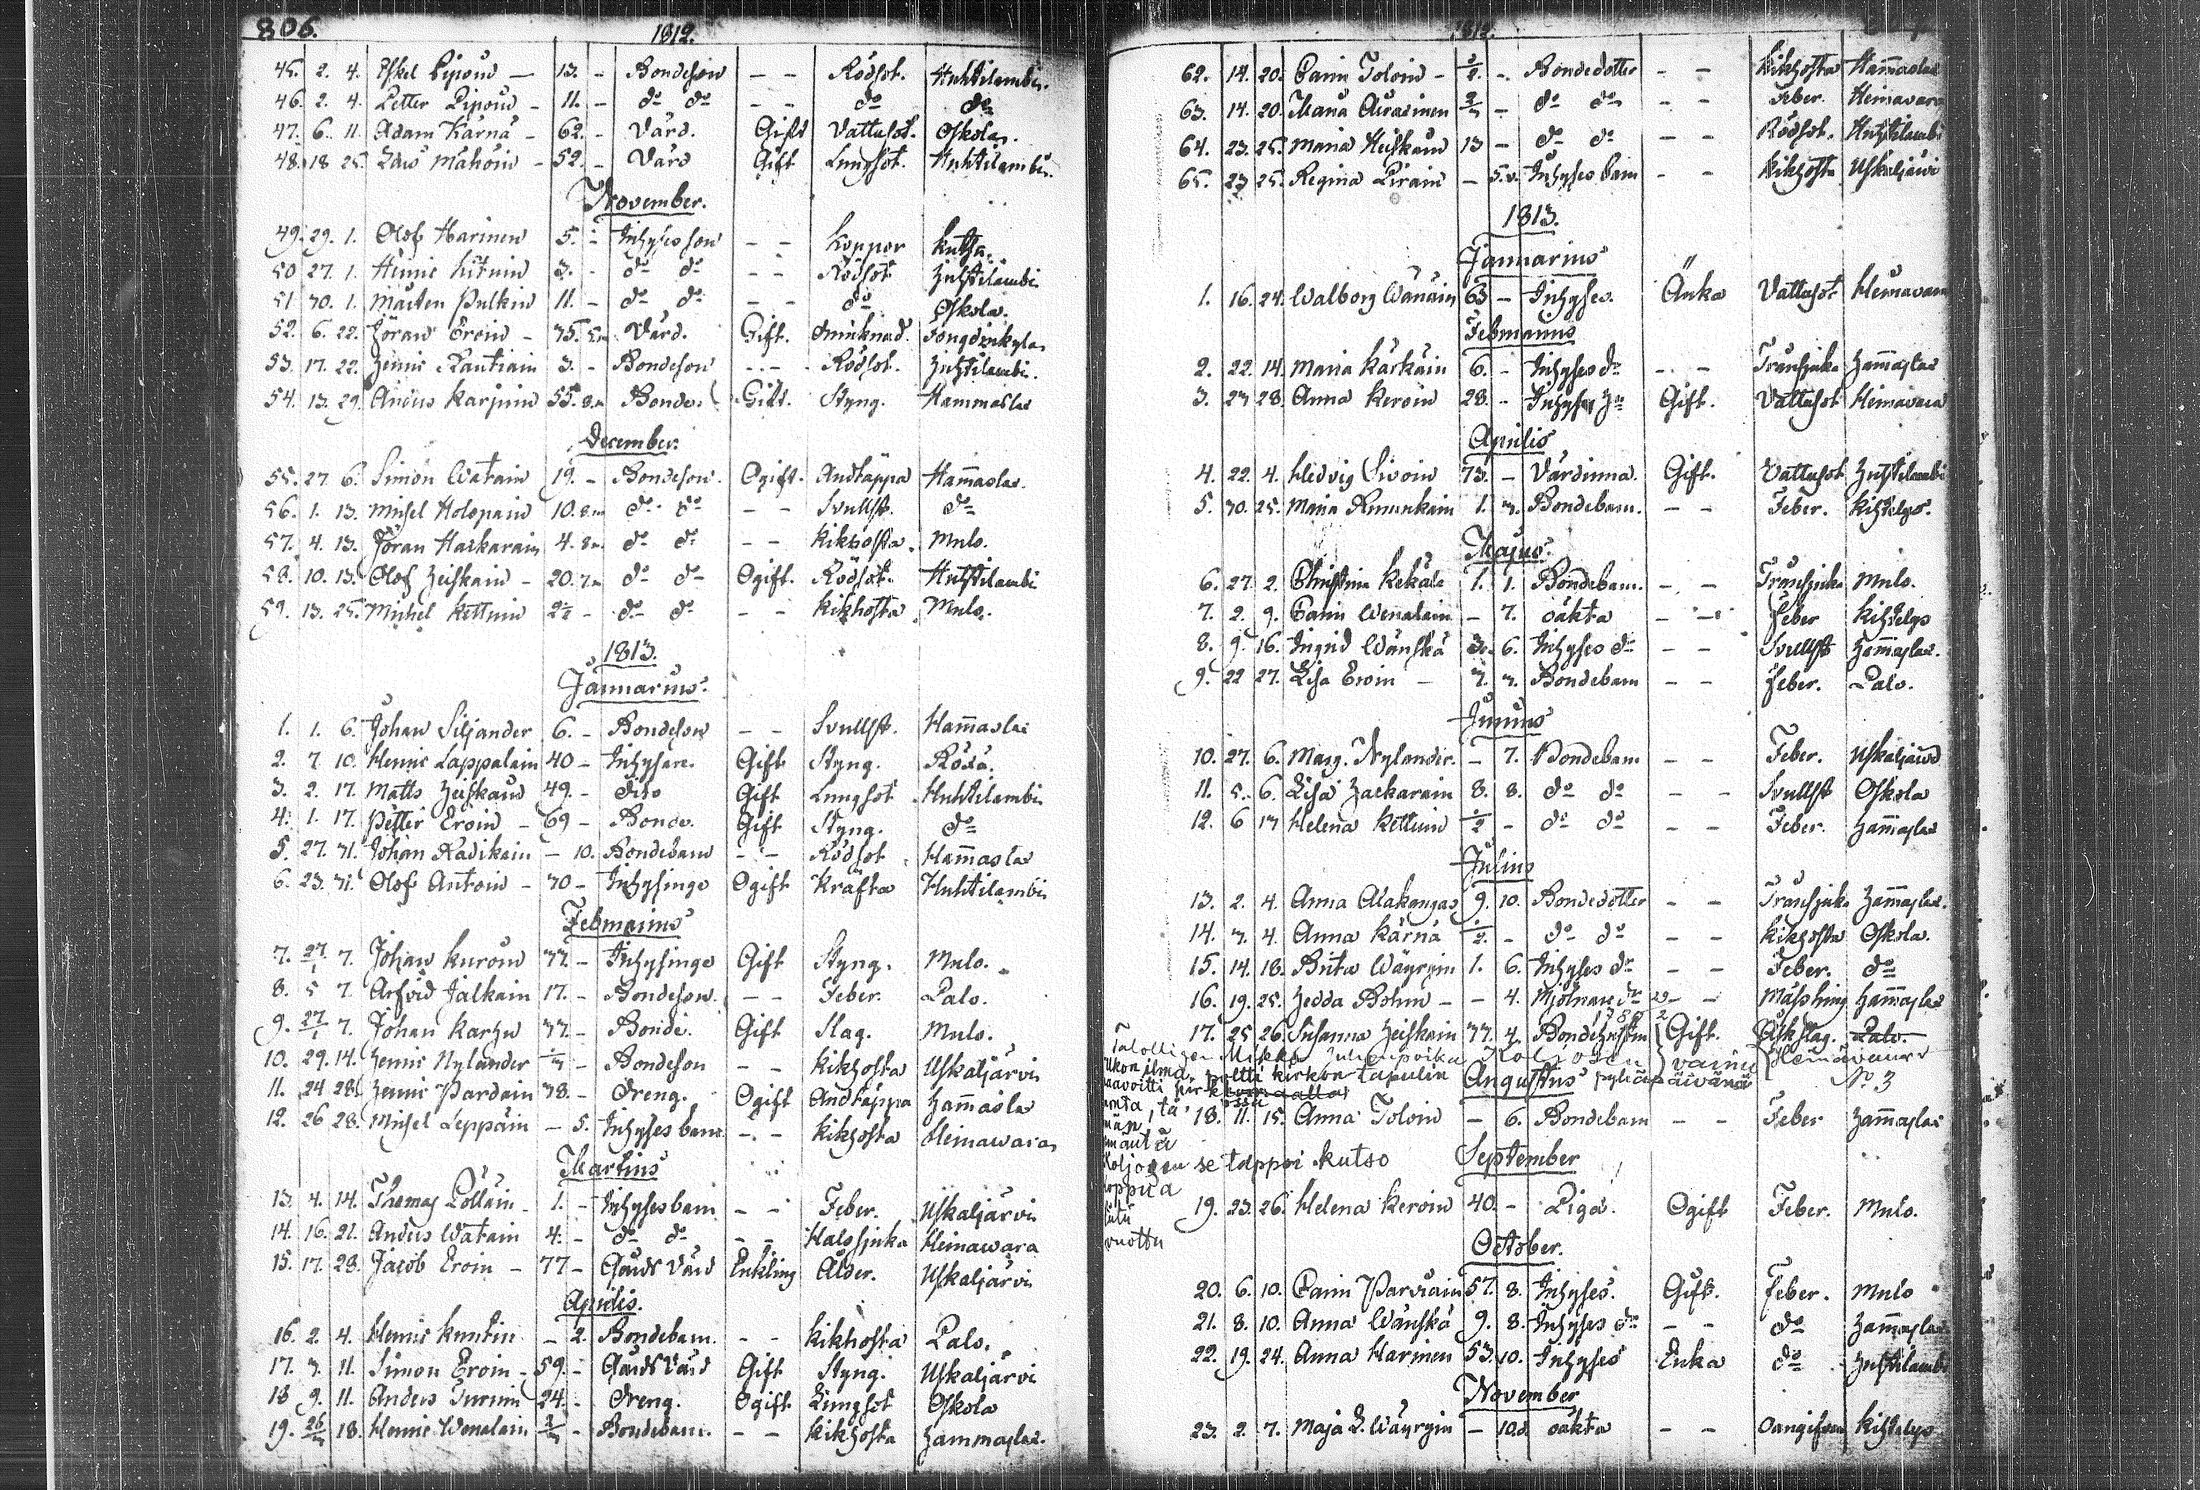 806.
1812.
45. 2. 4. Eskel Piroin — 13. - Bondeson - - Rödsot. Huhtilambi.
46. 2. 4. Petter Piroin - 11. - do do - - do do
47. 6. 11. Adam Kärnä - 62. - Värd. Gift Vattusot. Oskola.
48. 18 25. Lars Mähöin - 52. - Värd Gift Lungsot. Huhtilambi.
November.
49. 29. 1. Olof Harinen 5. - Inhyses son - - Koppor
50 27. 1. Hinric 3. - do do - - Rödsot Huhtilambi
51 30. 1. Mårten Pulkin 11. - do do - - do Oskola.
52. 6. 22. Jöran Eroin - 75. Värd. Gift.
53. 17. 22. Henric Rautiain 3. - Bondeson - - Rödsot. Huhtilambi.
54. 13. 29. Anders Karjuin 55. Bonde. Gift. Styng. Hammaslax
December.
55. 27 6. Simon Watain 19. - Bondeson. Ogift. Andtäppa Hammaslax.
56. 1. 13. Michel Holopain 10. do do - - Svullst. do
57. 4. 13. Jöran Hackarain 4. do do - - Kikhosta. Mulo.
58. 10. 13. Olof Heiskain - 20. do do Ogift. Rödsot. Huhtilambi
59. 13. 25. Michel Kettuin do do - - Kikhosta Mulo.
1813.
Januarius.
1. 1. 6. Johan Siljander 6. - Bondeson - - Svullst. Hammaslax
2. 7 10. Henric Lappalain 40 - Inhyses. Gift Styng.
3. 2. 17. Matts Heiskain 49. - dito Gift Lungsot Huhtilambi
4. 1. 17. Petter Eroin - 69 - Bonde. Gift Styng. do
5. 27. 31. Johan Radikain - 10. Bondebarn - - Rödsot Hammaslax
6. 23. 31. Olof Antoin - 70 - Inhysinge Ogift Kräfta Huhtilambi
Februarius
7. 27/1 7. Johan Kuroin 77. - Inhysinge Gift Styng. Mulo.
8. 5 7. Arfvid Jalkain 17. - Bondeson. - - Feber. Palo.
9. 27/1 7. Johan Karhu 77. - Bonde. Gift Slag. Mulo.
10. 29. 14. Henric Nylander - Bondeson - - Kikhosta Uskaljärvi
11. 24 28. Henric Pardain 78. - Dreng. Ogift Andtäppa Hammaslax
12. 26 28. Michel Leppäin - 5. Inhyses barn - - Kikhosta Heinawara
Martius
13. 4. 14. Thomas Pöllain - 1. - Inhysesbarn - - Feber. Uskaljärvi
14. 16. 21. Anders Watain 4. - do do - - Halssjuka Heinawara
15. 17. 28. Jacob Eroin - 77 - Gårds Värd Enkling Ålder. Uskaljärvi
Aprilis.
16. 2. 4. Henric Kuntin - 2. Bondebarn. - - Kikhosta Palo.
17. 7. 11. Simon Eroin - 59. - Gårds Värd Gift Styng. Uskaljärvi
18 9. 11. Anders Turuin 24. - Dreng. Ogift Lungsot Oskola
19. 18. Henric Wenalain - Bondebarn. - - Kikhosta Hammaslax.
1812.
62. 14. 20. Carin Toloin - - Bondedotter - - Kikhosta Hammaslax
63. 14. 20. Maria - do do - - Feber. Heinavara
64. 23. 25. Maria Heiskain 13 - do do - - Rödsot. Huhtilambi
65. 23 25. Regina Pirain - 5. Inhyses barn - - Kikhosta Uskaljärvi
1813.
Januarius
1. 16. 24. Walborg Wänäin 63 - Inhyses. Änka Vattusot Heinavara
Februarius
2. 22. 14. Maria Kärkäin 6. - Inhyses dr - - Trånsjuka Hammaslax
3. 27 28. Anna Keroin 28. - Inhyses Gift. Vattusot Heinavara
Aprilis
4. 22. 4. Hedvig Sivoin 73. - Värdinna. Gift. Vattusot Huhtilambi
5. 30. 25. Maria 1. 7. Bondebarn. - - Feber. Kihtelys.
Majus.
6. 27. 2. Christina Kekäle 1. 1. Bondebarn. - - Trånsjuka Mulo.
7. 2. 9. Carin Wenalain - 7. oäkta - - Feber Kihtelys
8. 9. 16. Ingrid Wänskä 3. 6. Inhyses dr - - Svullst Hammaslax.
9. 22 27. Lisa Eroin - 7. 7. Bondebarn - - Feber. Palo.
Junius
10. 27. 6. Marg. Nylander. - 7. Bondebarn - - Feber. Uskaljärvi
11. 5. 6. Lisa Hackarain 8. 8. do do - - Svullst Oskola
12. 6 13 Helena Kettuin 1/2 - do do - - Feber. Hammaslax
Julius
13. 2. 4. Anna Alakangas 9. 10. Bondedotter - - Trånsjuka Hammaslax.
14. 7. 4. Anna Kärnä 1/2. - do do - - Kikhosta Oskola.
15. 14. 18. Brita Wäyryin 1. 6. Inhyses dr - - Feber. do
16. 19. 25. Hedda Bohm - - 4. Mjölnare dr - - Mässling Hammaslax
17. 25 26. Susanna Heiskain 77. 4. Bondehustru Gift. Åskslag. Palo.
Talollisen Mikko Juhonpoika Koljosen vaimo Heinävaara
Ukon ilma poltti kirkon tapulin pyhäpäivänä No 3
Augustus
18. 11. 15. Anna Toloin - 6. Bondebarn - - Feber Hammaslax
Koljosen se tappoi kutso
vuottu
September
19. 23. 26. Helena Keroin 40. - Piga. Ogift Feber. Mulo.
October.
20. 6. 10. Carin Parviain 57. 8. Inhyses. Gift. Feber. Mulo
21. 8. 10. Anna Wänskä 9. 8. Inhyses dr - - do Hammaslax
22. 19. 24. Anna Harinen 53. 10. Inhyses Enka do Huhtilambi
November
23. 2. 7. Maja L. Wäyryin - 10 d. oäkta - - Oangifven Kihtelys